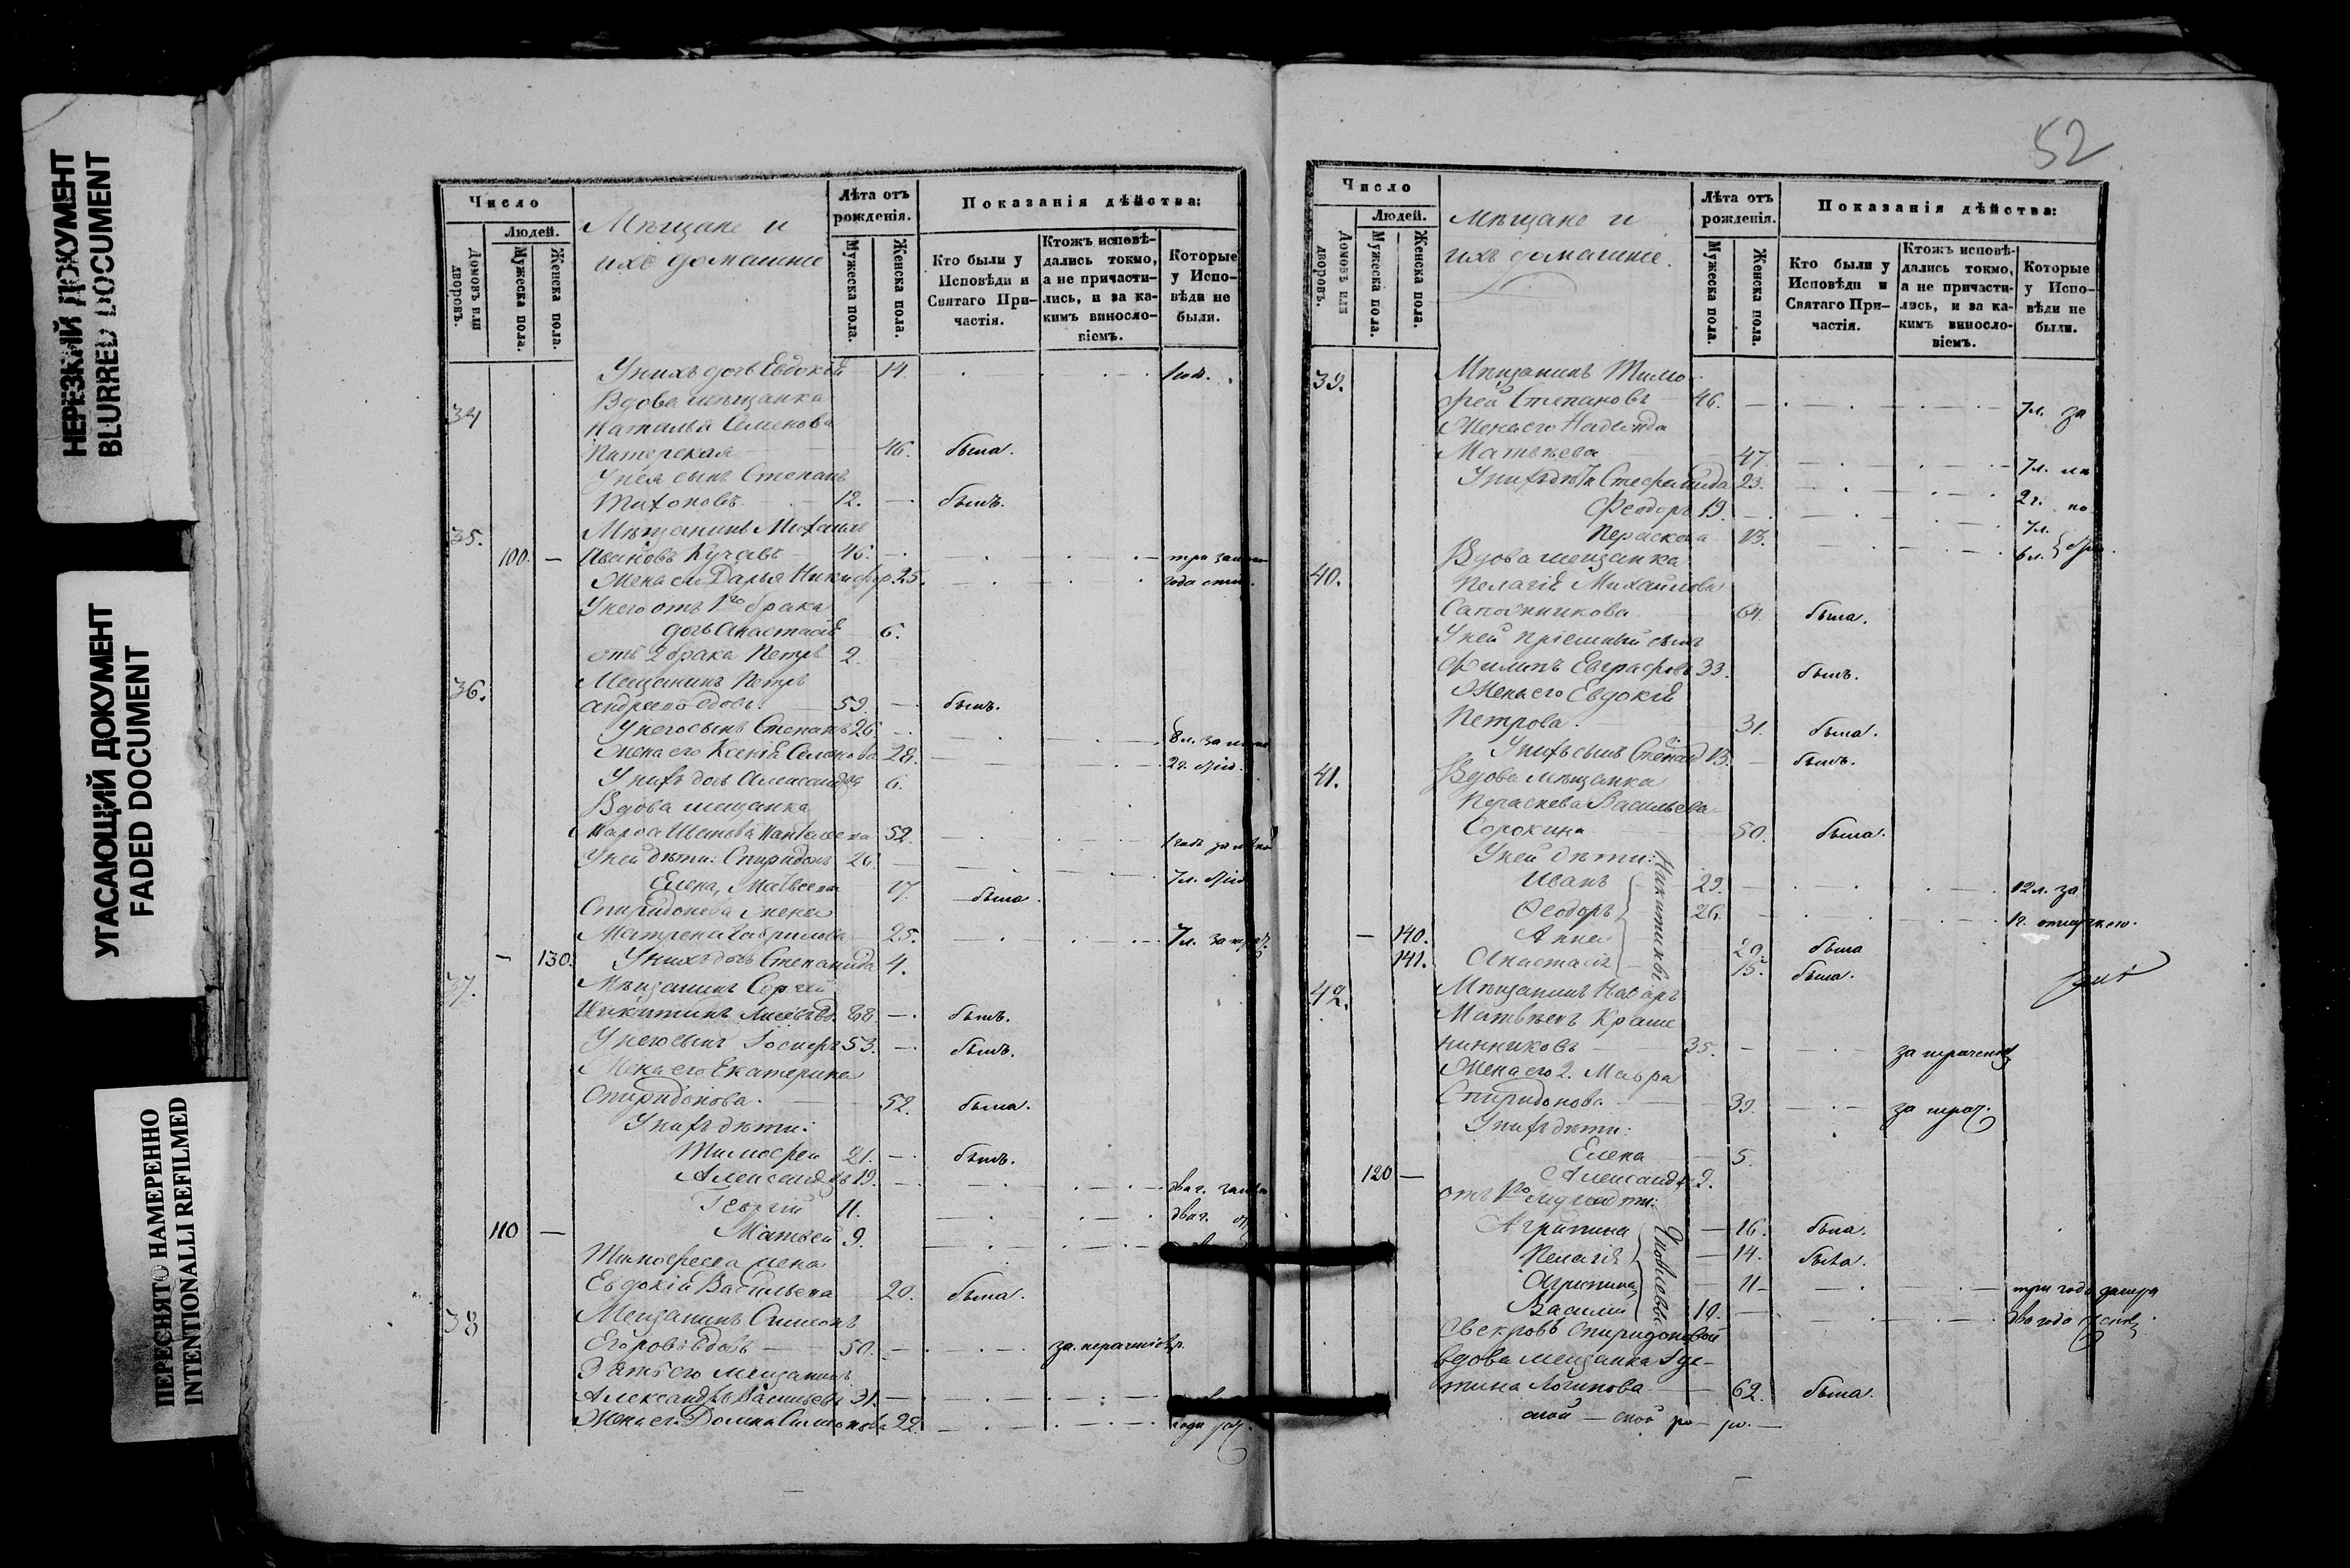 НЕРЕЗКИЙ ДОКУМЕНТ
BLURRED DOCUMENT
УГАСАЮЩИЙ ДОКУМЕНТ
FADED DOCUMENT
ПЕРЕСНЯТО НАМЕРЕННО
INTENTIONALLI REFILMED
Число
Домовъ или дворовъ.
Людей.
Мужеска пола.
Женска пола.
Мѣщане и
ихъ домашніе
Лѣта отъ рожденія.
Мужеска пола.
Женска пола.
Показанія дѣйства:
Кто были у Исповѣди и Святаго При-
частія.
Ктожъ исповѣ-
дались токмо,
а не причасти-
лись, и за ка-
кимъ винословіемъ.
Которые
у Испо-
вѣди не
были.
У нихъ дочь Евдокія 14.
34 Вдова мѣщанка
Наталья Семенова
Питерская 46. была.
У нея сынъ Степанъ
Тихоновъ 12. былъ.
35. Мѣщанинъ Михаилъ
100. Ивановъ 46.
Жена его Дарья Никифор 25.
У него отъ 1го брака
дочь Анастасія 6.
отъ 2 брака Петръ 2.
36. Мещанинъ Петръ
Андреевъ вдовъ. 59. былъ.
У него сынъ Степанъ 26
Жена его Ксенія Семенова 28.
У нихъ дочь Александра 6.
Вдова мещанка
52.
У ней дѣти: Спиридонъ 26
Елена, Матвеевы 17. была.
Спиридонова жена
Матрена Гаврилова 25. 7 л.
130. У нихъ дочь Степанида 4.
37. Мѣщанинъ Сергій
Никитинъ 88. былъ.
У него сынъ Іосифъ 53. былъ.
Жена его Екатерина
Спиридонова. 52. была.
У нихъ дѣти:
Тимофей 21. былъ.
Александръ 19.
Георгій 11.
110 Матвей 9.
Тимофеева жена
Евдокія Васильева 20. была.
38 Мещанинъ Симеонъ
Егоровъ вдовъ 50.
Зять его мещанинъ
Александръ Васильевъ 31.
Жена его Домна Симонова 22.
52
Число
Домовъ или дворовъ.
Людей.
Мужеска пола.
Женска пола.
Мѣщане и
ихъ домашніе.
Лѣта отъ рожденія.
Мужеска пола.
Женска пола.
Показанія дѣйства:
Кто были у
Исповѣди и
Святаго При-
частія.
Ктожъ исповѣ-
дались токмо,
а не причасти-
лись, и за ка-
кимъ винословіемъ.
Которые
у Испо-
вѣди не
были.
39. Мѣщанинъ Тимо
фей Степановъ 46. 7 л. за
Жена его Надежда
Матвеева 47. 7 л.
У нихъ дѣти Стефанида 23. 2 г.
Феодоръ 19. 7 л.
Пераскева 13. 6 л.
Вдова мещанка
40. Пелагія Михайлова
Сапожникова 64. была.
У ней пріемный сынъ
Филипъ Евграфовъ 33. былъ.
Жена его Евдокія
Петрова. 31. была.
У нихъ сынъ 13. былъ.
41. Вдова мѣщанка
Пераскева Васильева
Сорокина 50. была.
У ней дѣти:
Иванъ 29. 12 л. за
Ѳеодоръ 26.
Никитины
140. Анна 29. была
141. Анастасія 15. была.
42. Мѣщанинъ Назаръ
Матвѣевъ Краше
нинниковъ 35.
Жена его 2. Мавра
Спиридонова 39.
У нихъ дѣти:
Елена 5.
120 Александръ 2.
отъ 1го мужа дѣти:
Агрипина 16. была.
Пелагія 14. была.
Агрипина 11
Василій 10.
Свекровь Спиридоновой
вдова мещанка
Логинова 62. была.